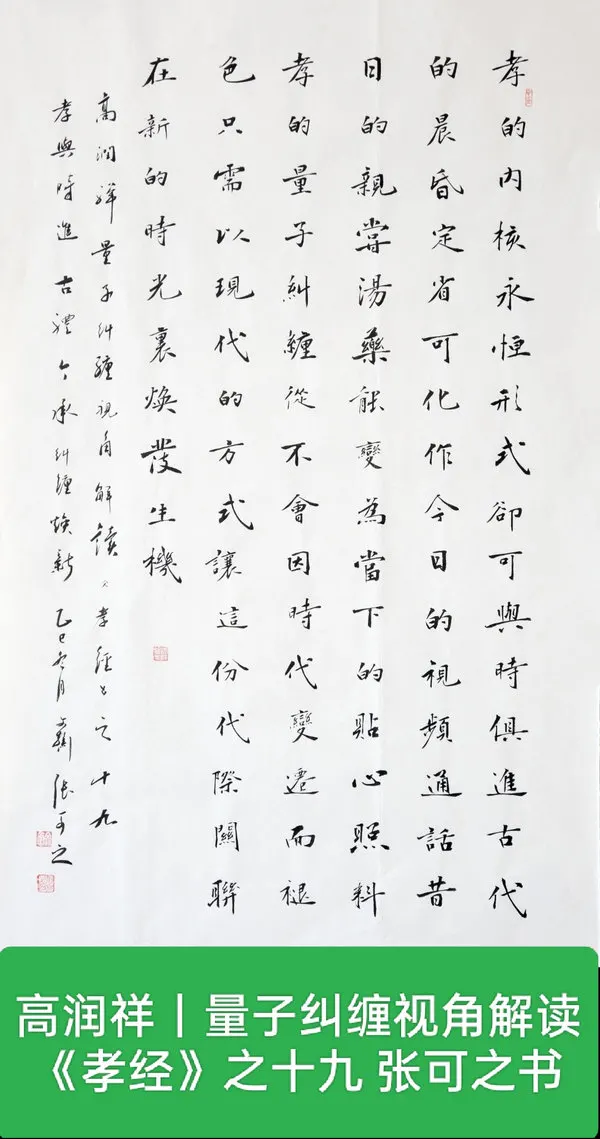 孝的内核永恒形式卻可與時俱進古代
的晨昏定省可化作今日的視頻通話昔
日的親嘗湯藥能變為當下的貼心照料
孝的量子糾纏從不會因時代變遷而褪
色只需以現代的方式讓這份代際關聯
在新的時光裏煥發生機
高润祥量子纠纏视角解读《孝經》之十九
孝與時進古禮今承纠纏焕新乙巳冬月 張可之
高润祥丨量子纠缠视角解读
《孝经》之十九 张可之书